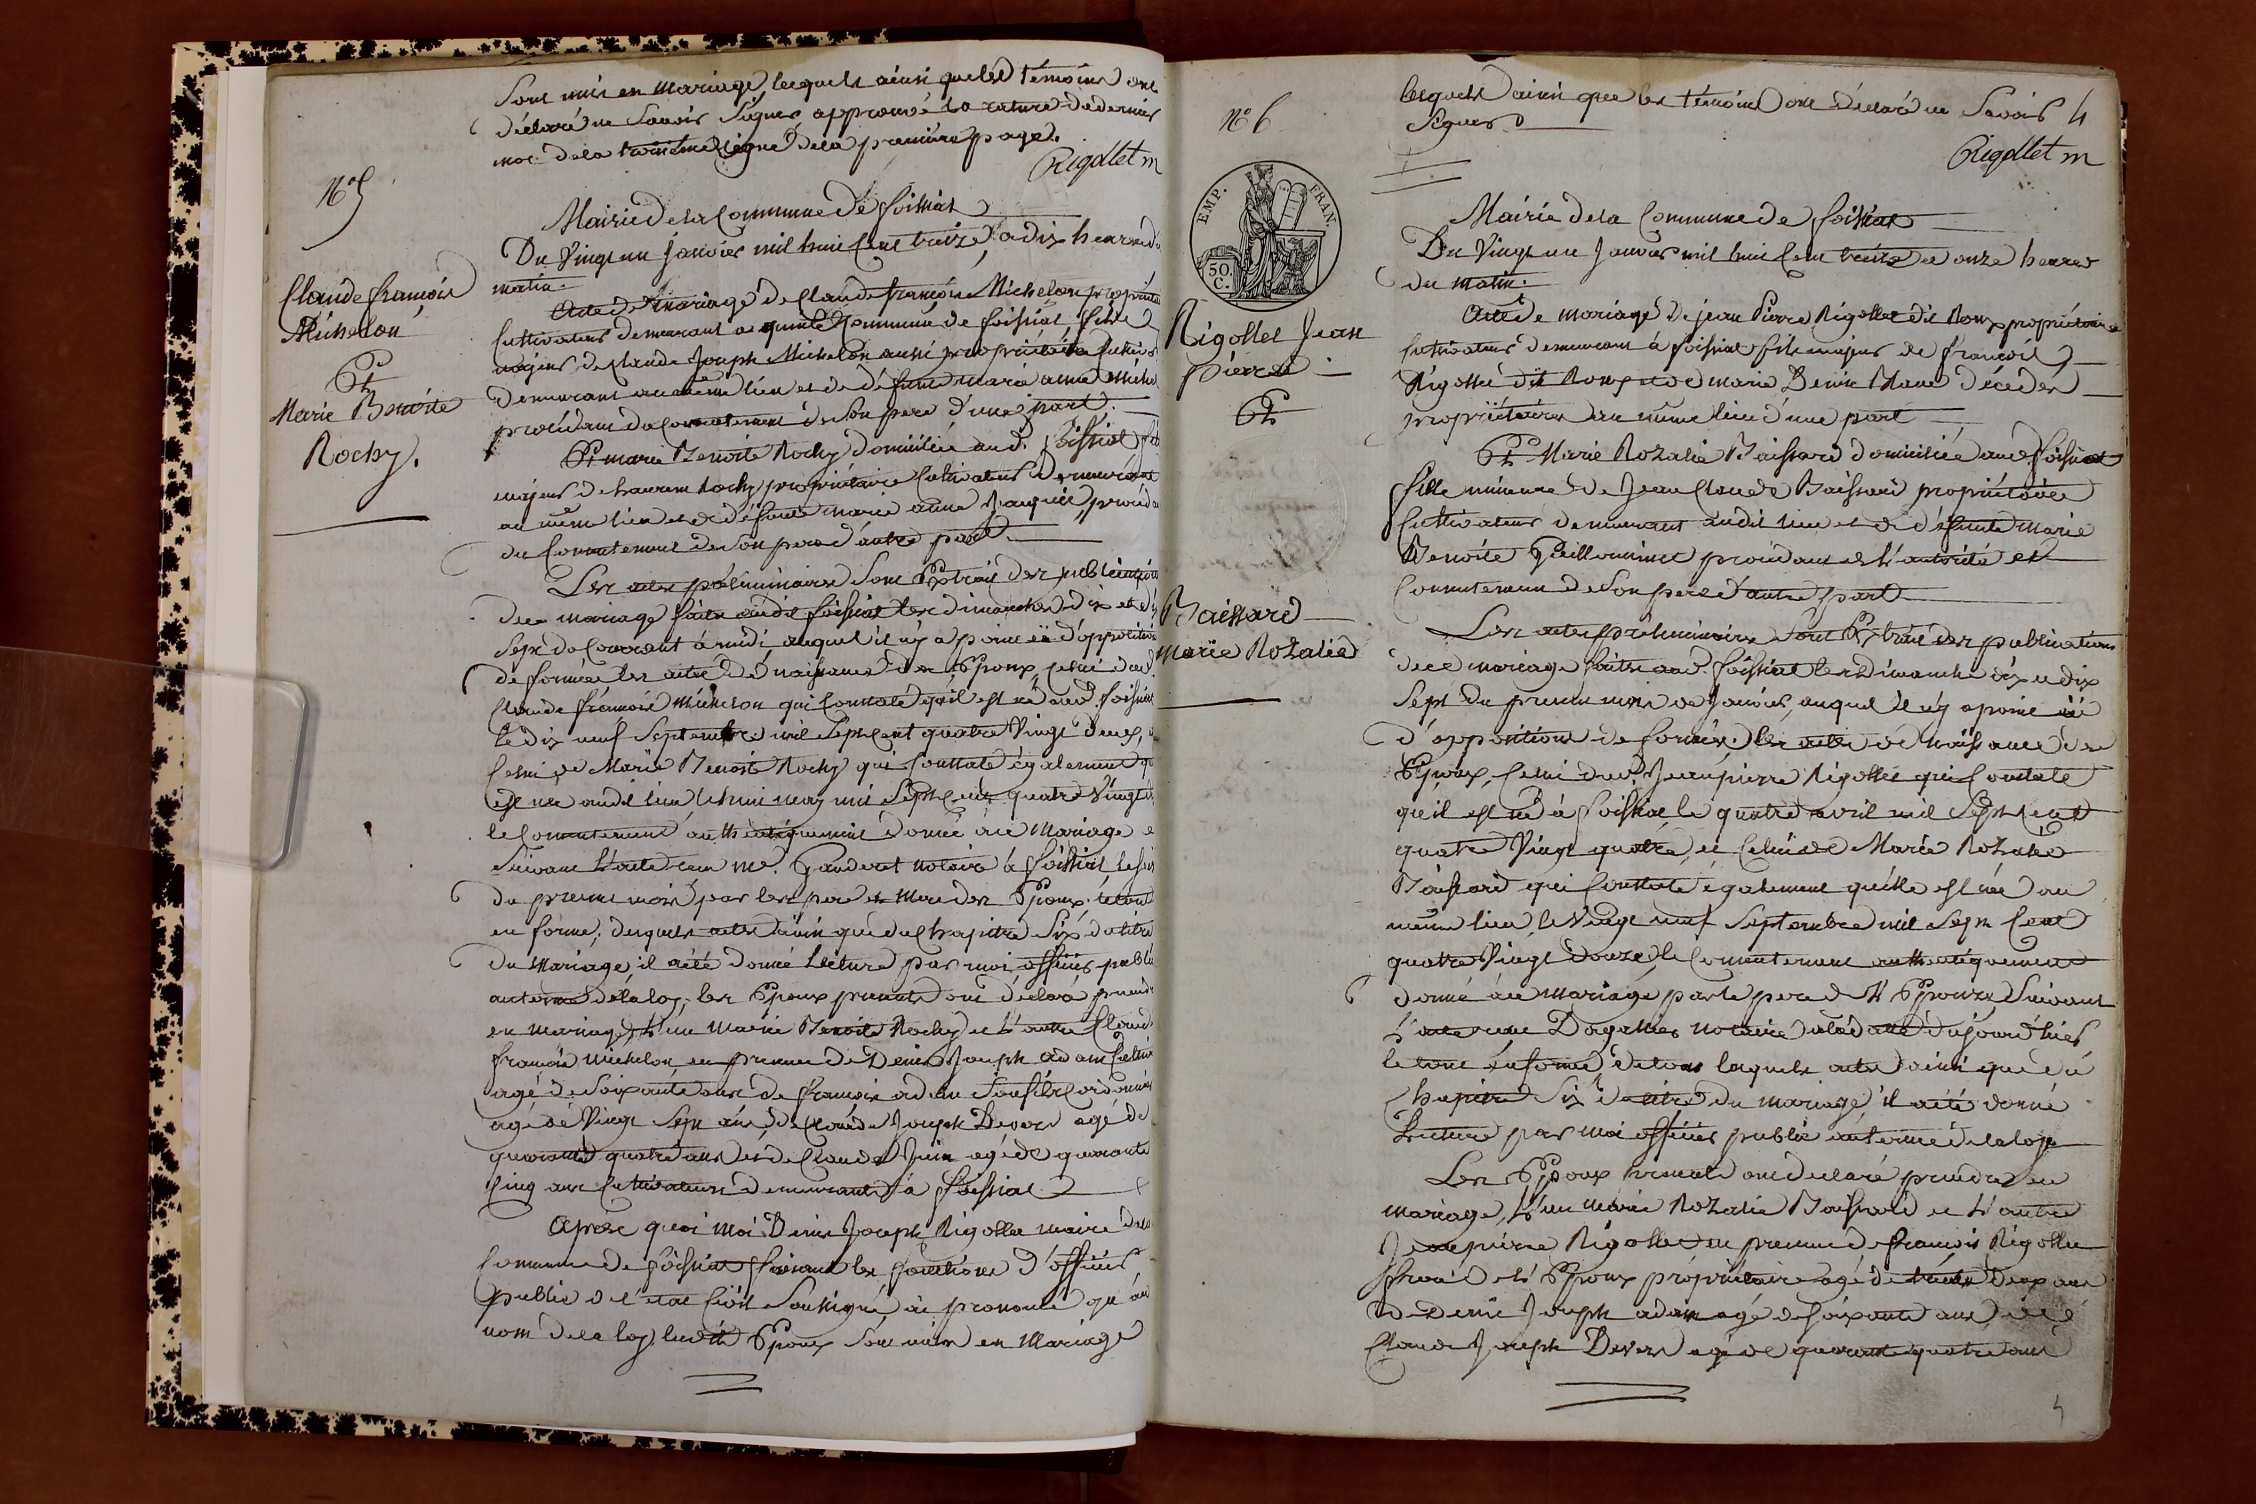 Sont unis en mariage, lesquels ainsi que les témoins ont
déclaré ne Savoir Signer, approuvé la rature de dernier
mot de la troisième ligne de la première page.
Rigollet m
N° 5
Claude françois
Michelon
Et
Marie Benoite
Rochy.
Mairie de la Commune de foissiat
Du Vingt un Janvier mil huit Cent treize, a dix heures du
matin.
Acte de mariage de Claude françois Michelon propriétai
Cultivateur demeurant a Commune de foissiat, fils
majeur de Claude Joseph Michelon aussi propriétaire Cultiv
demeurant au même lieu et de défunte marie anne
procédant du Consentement de Son pere d'une part.
Et marie Benoite Rochy domiciliée aud. foissiat fille
majeur de Laurent Rochy propriétaire Cultivateur demeurant
au même lieu et de défunte marie anne procéda
du Consentement de Son pere d'autre part.
Les actes préliminaires Sont Extrait des publications
de mariage faites audit foissiat les dimanches dix et dix
Sept du Courrant à midi, auquel il n'y a point eu d'oppositions
de formée les actes de naissance des Epoux, celui dud.
Claude françois Michelon qui Constate qu'il est né aud. foissiat
le dix neuf Septembre mil Sept Cent quatre Vingt deux, et
Celui de Marie Benoite Rochy qui Constate également qu
est née audit lieu le huit may mil Sept Cent quatre Vingt
le Consentement authentiquement donné à ce Mariage
Suivant l'acte reçu me. Ganderet notaire à foissiat, le
du présent mois par les pere et mere des Epoux, le tout
en forme; desquels actes ainsi que du Chapitre Six du titre
du Mariage, il a été donné Lecture par moi officier public
au terme de la loy. les Epoux présents ont déclaré prendre
en mariage, L'un Marie Benoite Rochy et L'autre Claude
françois Michelon, en presence de Denis Joseph adam Cultiva
agé de Soixante ans de françois adam Son fils Cordonnier
agé de Vingt Sept ans, de Claude Joseph Devers agé de
quarante quatre ans et de Claude Juin agé de quarante
Cinq ans Cultivateurs demeurants à foissiat
Après quoi moi Denis Joseph Rigollet maire de la
Commune de foissiat faisant les fonctions d'officier
public de l'état Civil Soussigné, ai prononcé qu'au
nom de la loy, lesdits Epoux Sont unis en Mariage
N° 6
EMP. FRAN.
50. C.
Rigollet Jean
pierre
Et
Baissard
marie Rozalie
lesquels ainsi que les témoins ont déclaré ne Savoir 4
Signer.
Rigollet m
Mairie de la Commune de foissiat
Du Vingt un Janvier mil huit Cent treize et onze heures
du matin.
Acte de mariage de jean Pierre Rigollet dit Roux propriétaire
Cultivateur demeurant à foissiat fils majeur de françois
Rigollet dit Roux et de marie Denise décédés
propriétaires au même lieu d'une part
Et Marie Rozalie Baissard domiciliée aud. foissiat
fille mineure de Jean Claude Baissard propriétaire
Cultivateur demeurant audit lieu et de défunte Marie
Benoite Guilleminet procédant de L'autorité et
Consentement de Son pere d'autre part
Les actes préliminaires Sont Extrait des publications
de ce mariage faites aud. foissiat les dimanche dix et dix
Sept du present mois de Janvier, auquel il n'y a point eu
d'oppositions de formée. les actes de naissance des
Epoux, Celui dud. Jean pierre Rigollet qui Constate
qu'il est né à foissiat le quatre avril mil Sept Cent
quatre Vingt quatre, et Celui de Marie Rozalie
Baissard qui Constate également qu'elle est née au
même lieu, le Vingt neuf Septembre mil Sept Cent
quatre Vingt douze, le Consentement authentiquement
donné à ce mariage par le pere de L'Epouse Suivant
L'acte reçu Dagallier notaire d'aujourd'hier
le tout en forme de tous lesquels actes ainsi que du
Chapitre Six du titre du mariage, il a été donné
Lecture par moi officier public au terme de la loye
Les Epoux présents ont declaré prendre en
mariage, L'un Marie Rozalie Baissard et L'autre
Jean pierre Rigollet en presence de françois Rigollet
frere de L'Epoux propriétaire agé de trente Deux ans
de Denis Joseph adam agé de Soixante ans de
Claude Joseph Devers agé de quarante quatre ans